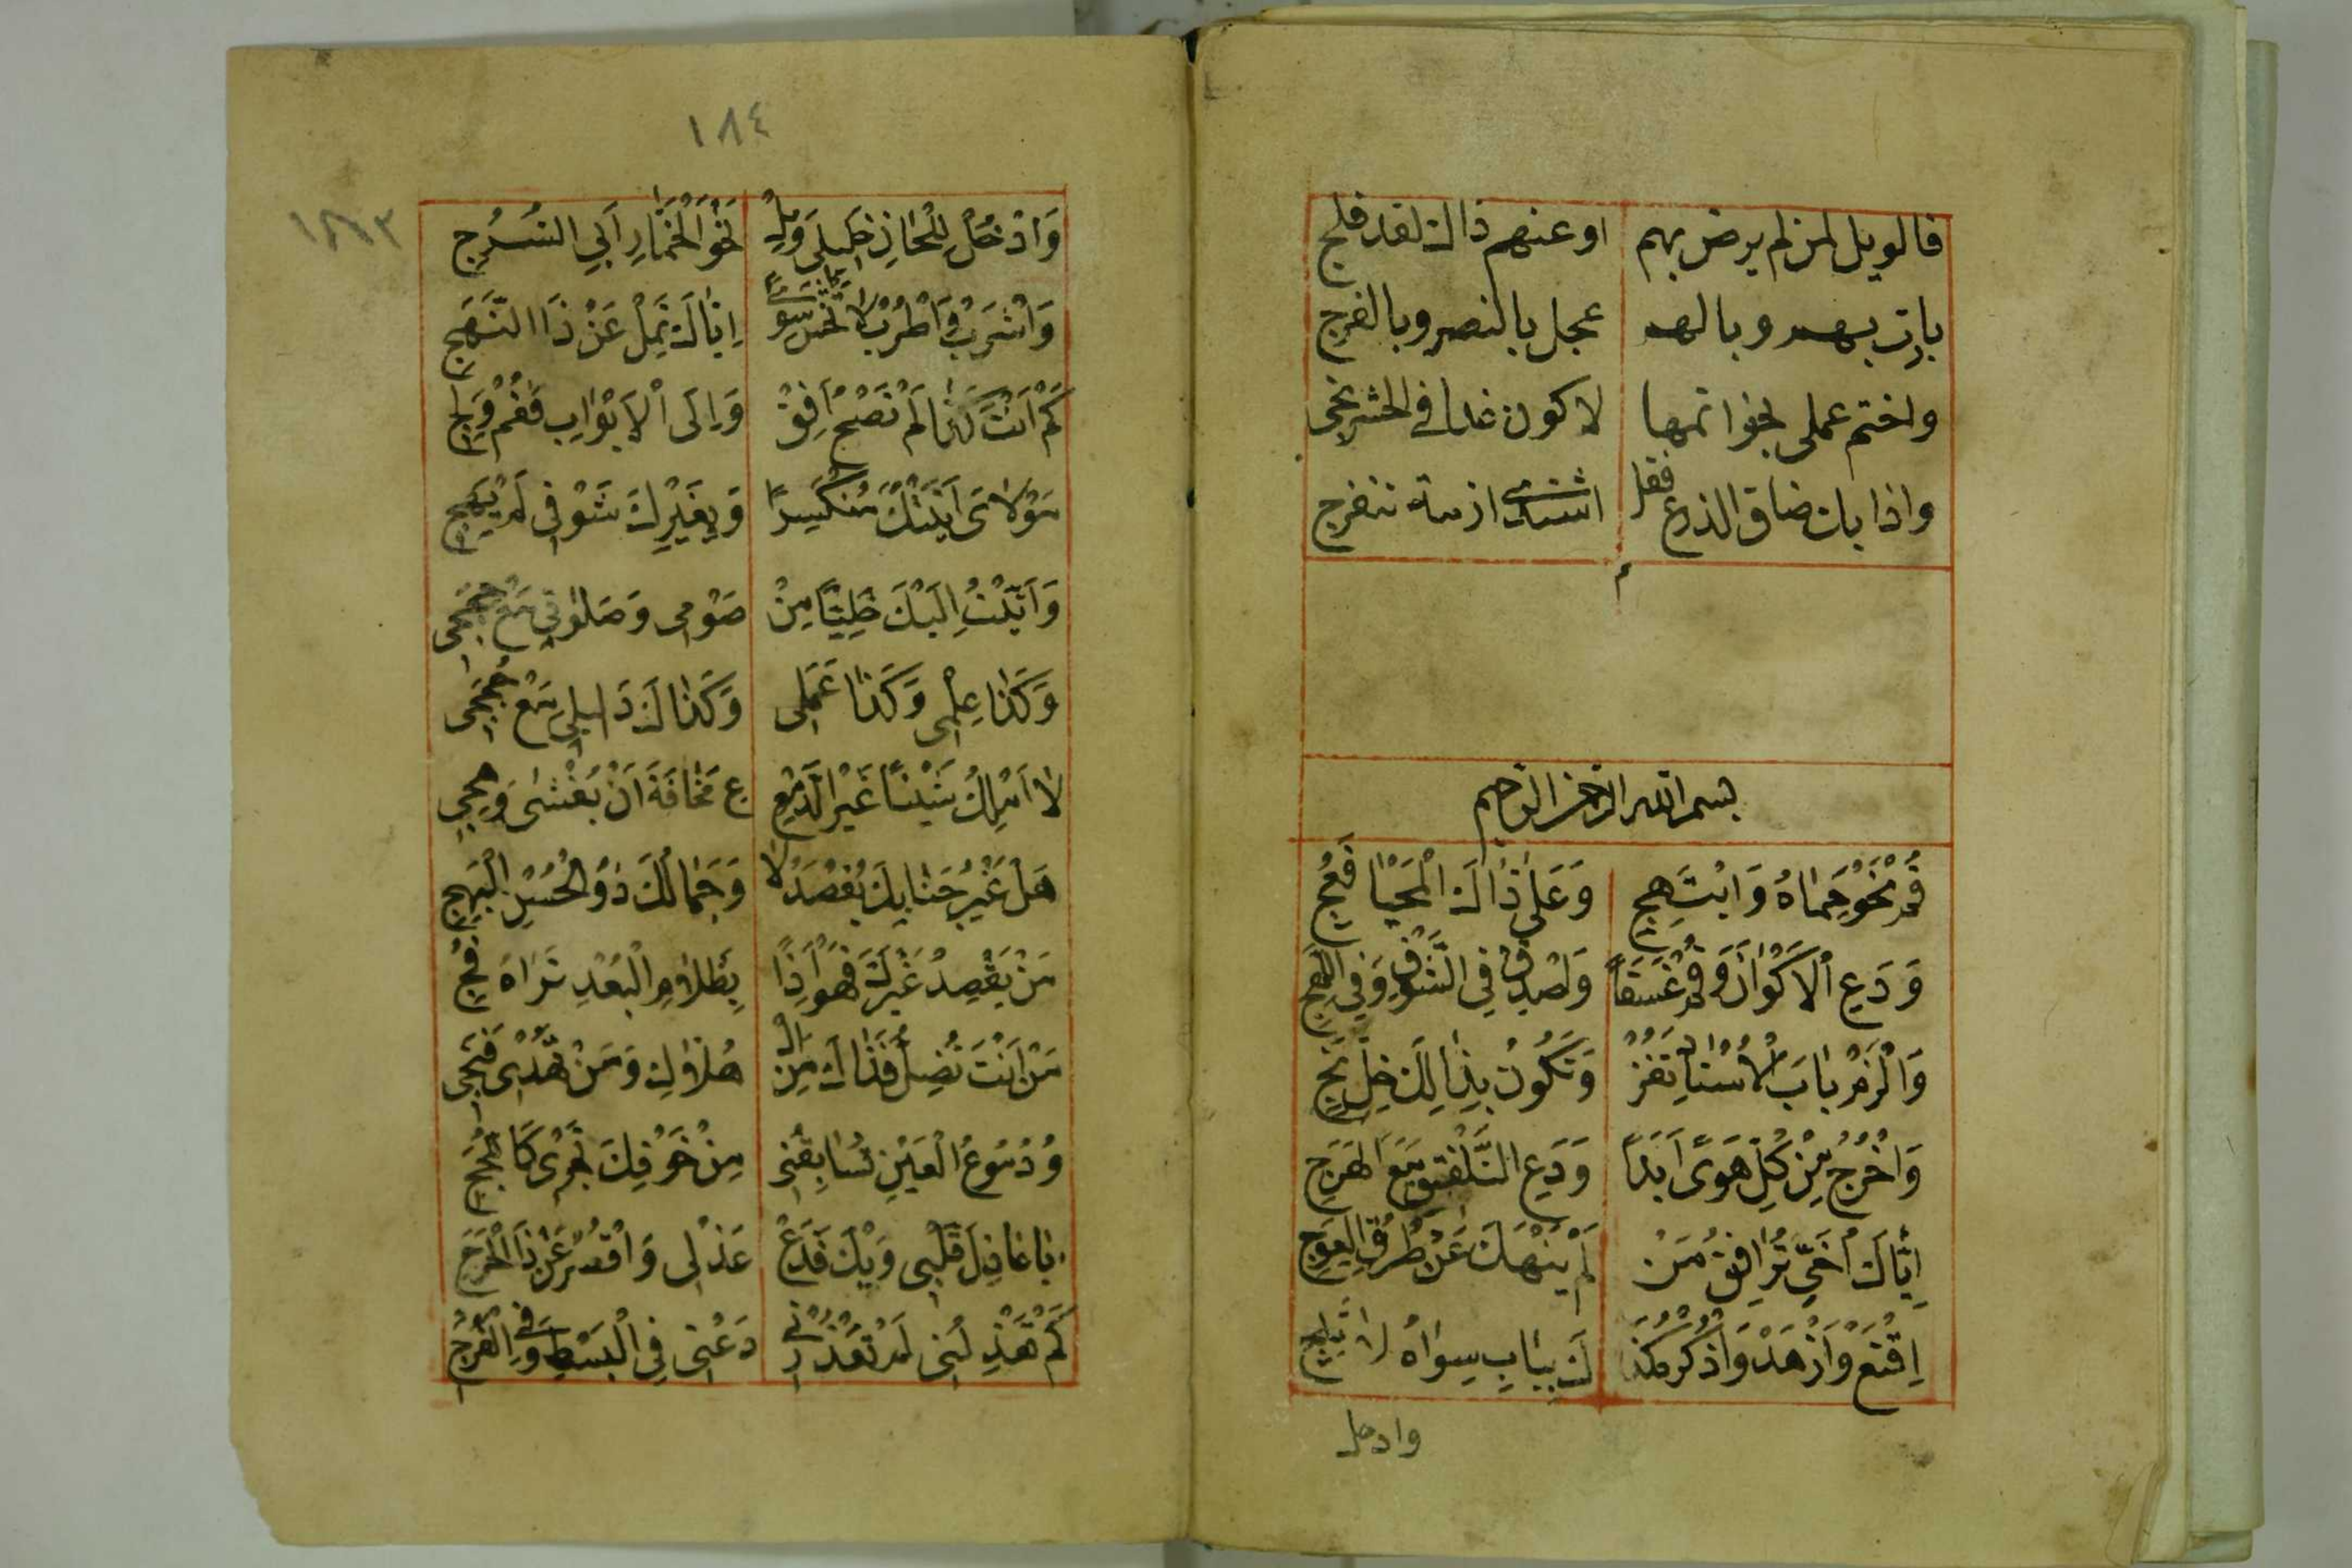 فالويل لمن لم يرض بهم او عنهم ذاك لقد فلج
يارب بهم وبالهم عجل بالنصر وبالفرج
واختم عملى بخواتمها لاكون غدا فى الحشر نجى
واذا بات ضاق الذرع فقل اشتدى ازمة تنفرج
م
بسم الله الرحمن الرحيم
قُمْ نَحْوَ حِمَاهُ وَابْتَهِجِ وَعَلَى ذَاكَ الْمَحْيَا فَعُجِ
وَدَعِ الْاَكْوَانَ وَقُمْ غَسَقًا وَاصْدُقْ فِي الشَّوْقِ وَفِي اللَّهَجِ
وَالْزَمْ بَابَ الْاُسْتَاذِ تَفُزْ وَتَكُونُ بِذَالِكَ خِلَّ نَجِ
وَاخْرُجْ عَنْ كُلِّ هَوًى اَبَدًا وَدَعِ التَّلْفِيقَ مَعَ الْهَرَجِ
اِيَّاكَ اُخَيَّ تُرَافِقُ مَنْ لَمْ يَنْهَكَ عَنْ طُرُقِ الْعِوَجِ
اِقْنَعْ وَازْهَدْ وَاذْكُرْهُ كَذَا لَكَ بِبَابِ سِوَاهُ لَا تَلِجِ
وادخل
١٨٤
١٨٣
وَادْخُلْ لِلْحَانِ خَلِيلِى وَمِلْ نَحْوَ الْخَمَّارِ اَبِي السُّرُجِ
وَاشْرَبْ وَاطْرَبْ لَا تَخْشَ سِوًى اِيَّاكَ تَمِلْ عَنْ ذَا النَّهَجِ
كَمْ اَنْتَ كَذَا لَمْ تَصْحُ اَفِقْ وَاِلَى الْاَبْوَابِ فَقُمْ وَلِجِ
مَوْلَاىَ اَتَيْتُكَ مُنْكَسِرًا وَبِغَيْرِكَ شَوْقِى لَمْ يَهِجِ
وَاَتَيْتُ اِلَيْكَ خَلِيًّا مِنْ صَوْمِى وَصَلَوٰتِى مَعْ حِجَجِى
وَكَذَا عِلْمِى وَكَذَا عَمَلِى وَكَذَاكَ دَلِيلِى مَعْ حُجَجِى
لَا اَمْلِكُ شَيْئًا غَيْرَ الدَّمْعِ ع مَخَافَةَ اَنْ يُغْشٰى وَهَجِى
هَلْ غَيْرُ جَنَابِكَ يُقْصَدُ لَا وَجَمَالِكَ ذُو الْحُسْنِ الْبَهِجِ
مَنْ يَقْصِدُ غَيْرَكَ فَهُوَ اِذًا بِظَلَامِ الْبُعْدِ تَرَاهُ فُجِ
مَنْ اَنْتَ تُضِلُّ فَذَاكَ مِنَ الْ هُلَّاكِ وَمَنْ تَهْدِى فَنَجِى
وَدُمُوعُ الْعَيْنِ تُسَابِقُنِى مِنْ خَوْفِكَ تَجْرِى كَاللُّجَجِ
يَا عَاذِلَ قَلْبِى وَيْكَ فَدَعْ عَذْلِى وَاقْصُرْ عَنْ ذَا الْحَرَجِ
كَمْ تَعْذِلُنِى لَمْ تَعْذُرْنِى دَعْنِى فِي الْبَسْطِ وَفِي الْفَرَجِ